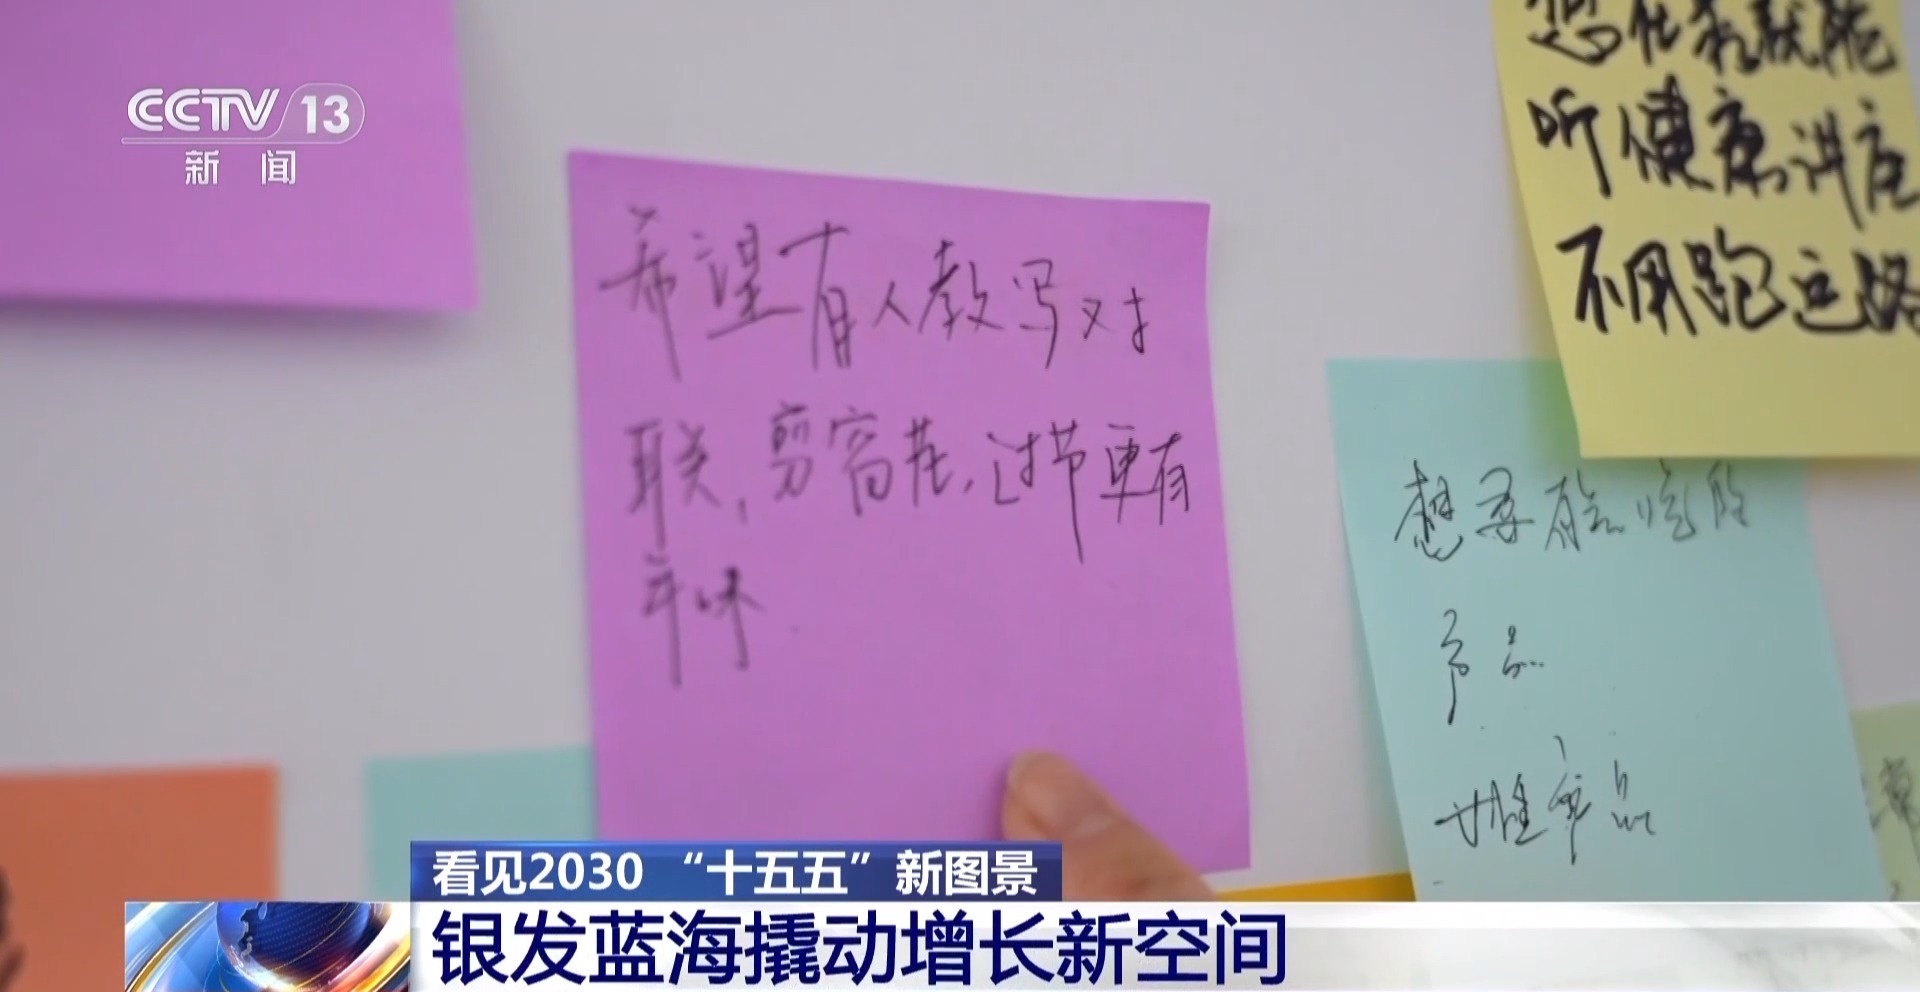 CCTV 13
新闻
听健康讲座
不用跑远路
希望有人教写对
联，剪窗花，过节更有
年味
想
产品
品
看见2030 “十五五”新图景
银发蓝海撬动增长新空间